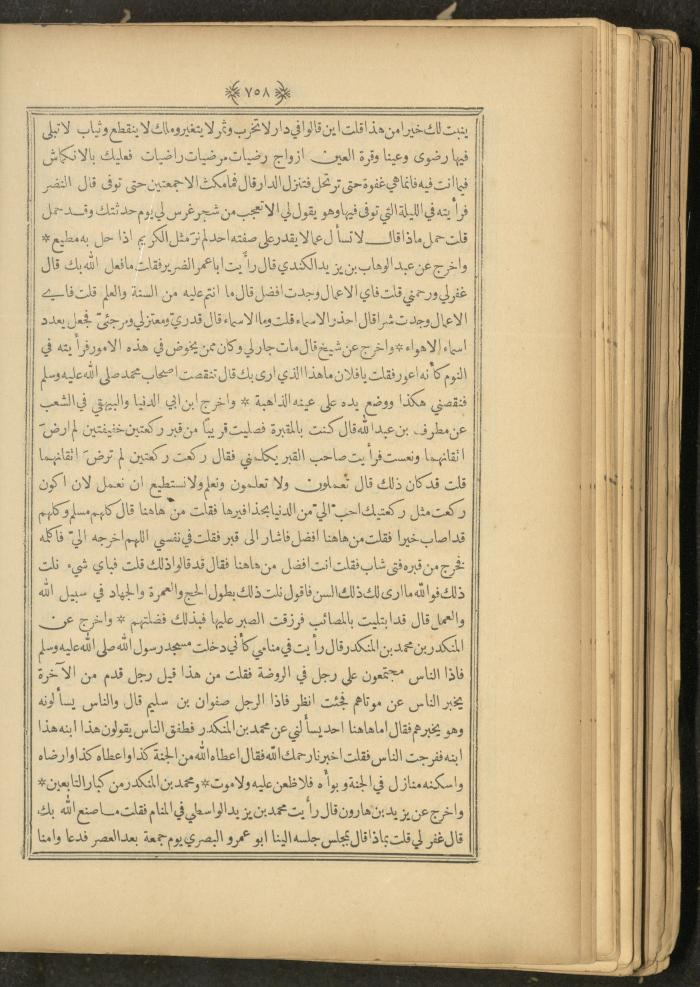 ﴿٧٥٨﴾
ينبت لك خيرا من هذا قلت اين قالوا في دار لا تخرب وثمر لا يتغير وملك لا ينقطع وثياب لا تبلى
فيها رضوى وعينا وقرة العين ازواج رضيات مرضيات راضيات فعليك بالانكماش
فيما انت فيه فانما هي غفوة حتى ترتحل فتنزل الدار قال فما مكث الا جمعتين حتى توفى قال النضر
فرأيته في الليلة التي توفى فيها وهو يقول لي الا تعجب من شجر غرس لي يوم حدثتك وقد حمل
قلت حمل ماذا قال لا تسأل عما لا يقدر على صفته احد لم نر مثل الكريم اذا حل به مطيع *
واخرج عن عبد الوهاب بن يزيد الكندي قال رأيت ابا عمر الضرير فقلت ما فعل الله بك قال
غفر لي ورحمني قلت فاي الاعمال وجدت افضل قال ما انتم عليه من السنة والعلم قلت فاي
الاعمال وجدت شرا قال احذر الاسماء قلت وما الاسماء قال قدريّ ومعتزلي ومرجئيّ فجعل يعدد
اسماء الاهواء * واخرج عن شيخ قال مات جار لي وكان ممن يخوض في هذه الامور فرأيته في
النوم كأنه اعور فقلت يا فلان ما هذا الذي ارى بك قال تنقصت اصحاب محمد صلى الله عليه وسلم
فنقصني هكذا ووضع يده على عينه الذاهبة * واخرج ابن ابي الدنيا والبيهقي في الشعب
عن مطرف بن عبد الله قال كنت بالمقبرة فصليت قريبًا من قبر ركعتين خفيفتين لم ارض
اتقانهما ونعست فرأيت صاحب القبر يكلمني فقال ركعت ركعتين لم ترض اتقانهما
قلت قد كان ذلك قال تعملون ولا تعلمون ونعلم ولا نستطيع ان نعمل لان اكون
ركعت مثل ركعتيك احبّ اليّ من الدنيا بحذافيرها فقلت من هاهنا قال كلهم مسلم وكلهم
قد اصاب خيرا فقلت من هاهنا افضل فاشار الى قبر فقلت في نفسي اللهم اخرجه اليّ فاكلمه
فخرج من قبره فتى شاب فقلت انت افضل من هاهنا فقال قد قالوا ذلك قلت فباي شيء نلت
ذلك فو الله ما ارى لك ذلك السن فاقول نلت ذلك بطول الحج والعمرة والجهاد في سبيل الله
والعمل قال قد ابتليت بالمصائب فرزقت الصبر عليها فبذلك فضلتهم * واخرج عن
المنكدر بن محمد بن المنكدر قال رأيت في منامي كأني دخلت مسجد رسول الله صلى الله عليه وسلم
فاذا الناس مجتمعون على رجل في الروضة فقلت من هذا قيل رجل قدم من الآخرة
يخبر الناس عن موتاهم فجئت انظر فاذا الرجل صفوان بن سليم قال والناس يسألونه
وهو يخبرهم فقال اما هاهنا احد يسألني عن محمد بن المنكدر فطفق الناس يقولون هذا ابنه هذا
ابنه ففرجت الناس فقلت اخبرنا رحمك الله فقال اعطاه الله من الجنة كذا واعطاه كذا وارضاه
واسكنه منازل في الجنة وبوأه فلا ظعن عليه ولا موت * ومحمد بن المنكدر من كبار التابعين *
واخرج عن يزيد بن هارون قال رأيت محمد بن يزيد الواسطي في المنام فقلت ما صنع الله بك
قال غفر لي قلت بماذا قال بمجلس جلسه الينا ابو عمرو البصري يوم جمعة بعد العصر فدعا وامنا